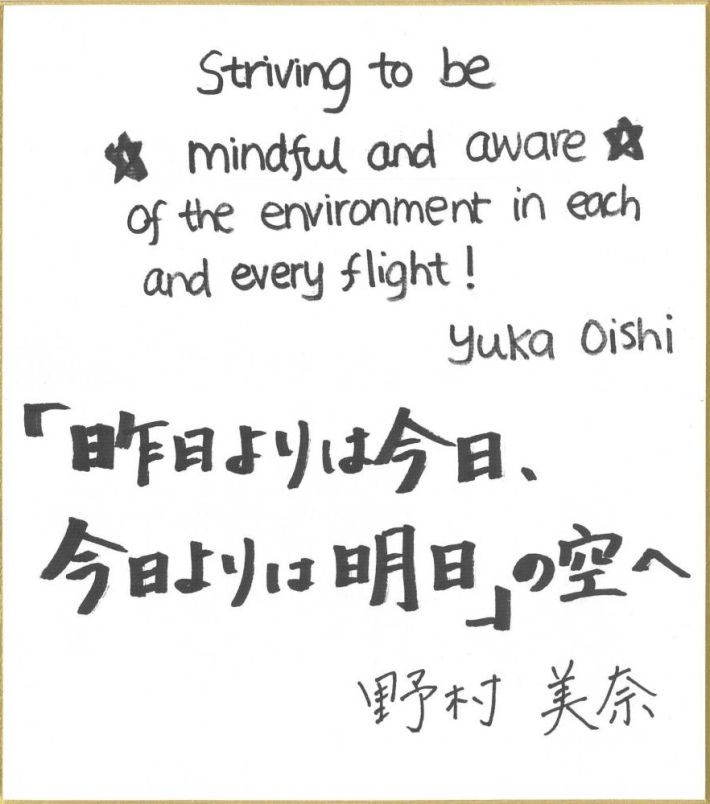 Striving to be
☆ mindful and aware ☆
of the environment in each
and every flight!
Yuka Oishi
「昨日よりは今日、
今日よりは明日」の空へ
野村 美奈